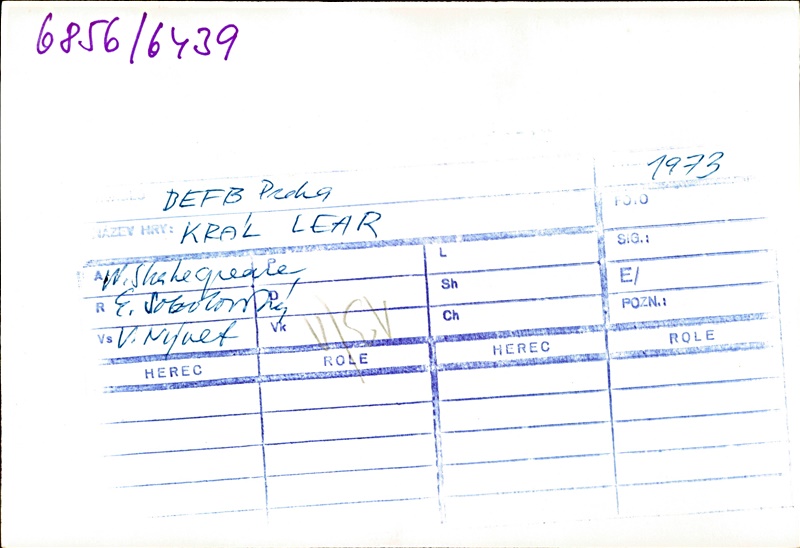 6856/6439
1973
DEFB Praha
NÁZEV HRY: KRÁL LEAR
A W. Shakespeare, L SIG.:
R E. Sobolovský D Sh E/
Vs V. Nývlt Vk Ch POZN.:
HEREC ROLE HEREC ROLE